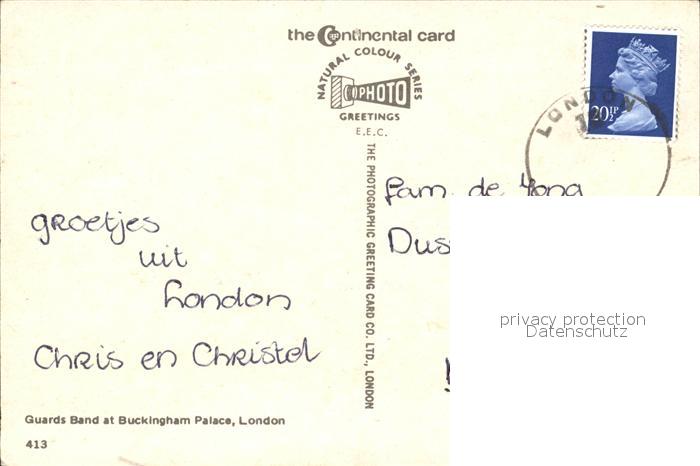 the Continental card
NATURAL COLOUR SERIES
PHOTO
GREETINGS
E.E.C.
THE PHOTOGRAPHIC GREETING CARD CO. LTD., LONDON
20½P
LONDON
Fam. de Jong
groetjes
uit
London
Chris en Christel
Guards Band at Buckingham Palace, London
413
privacy protection
Datenschutz